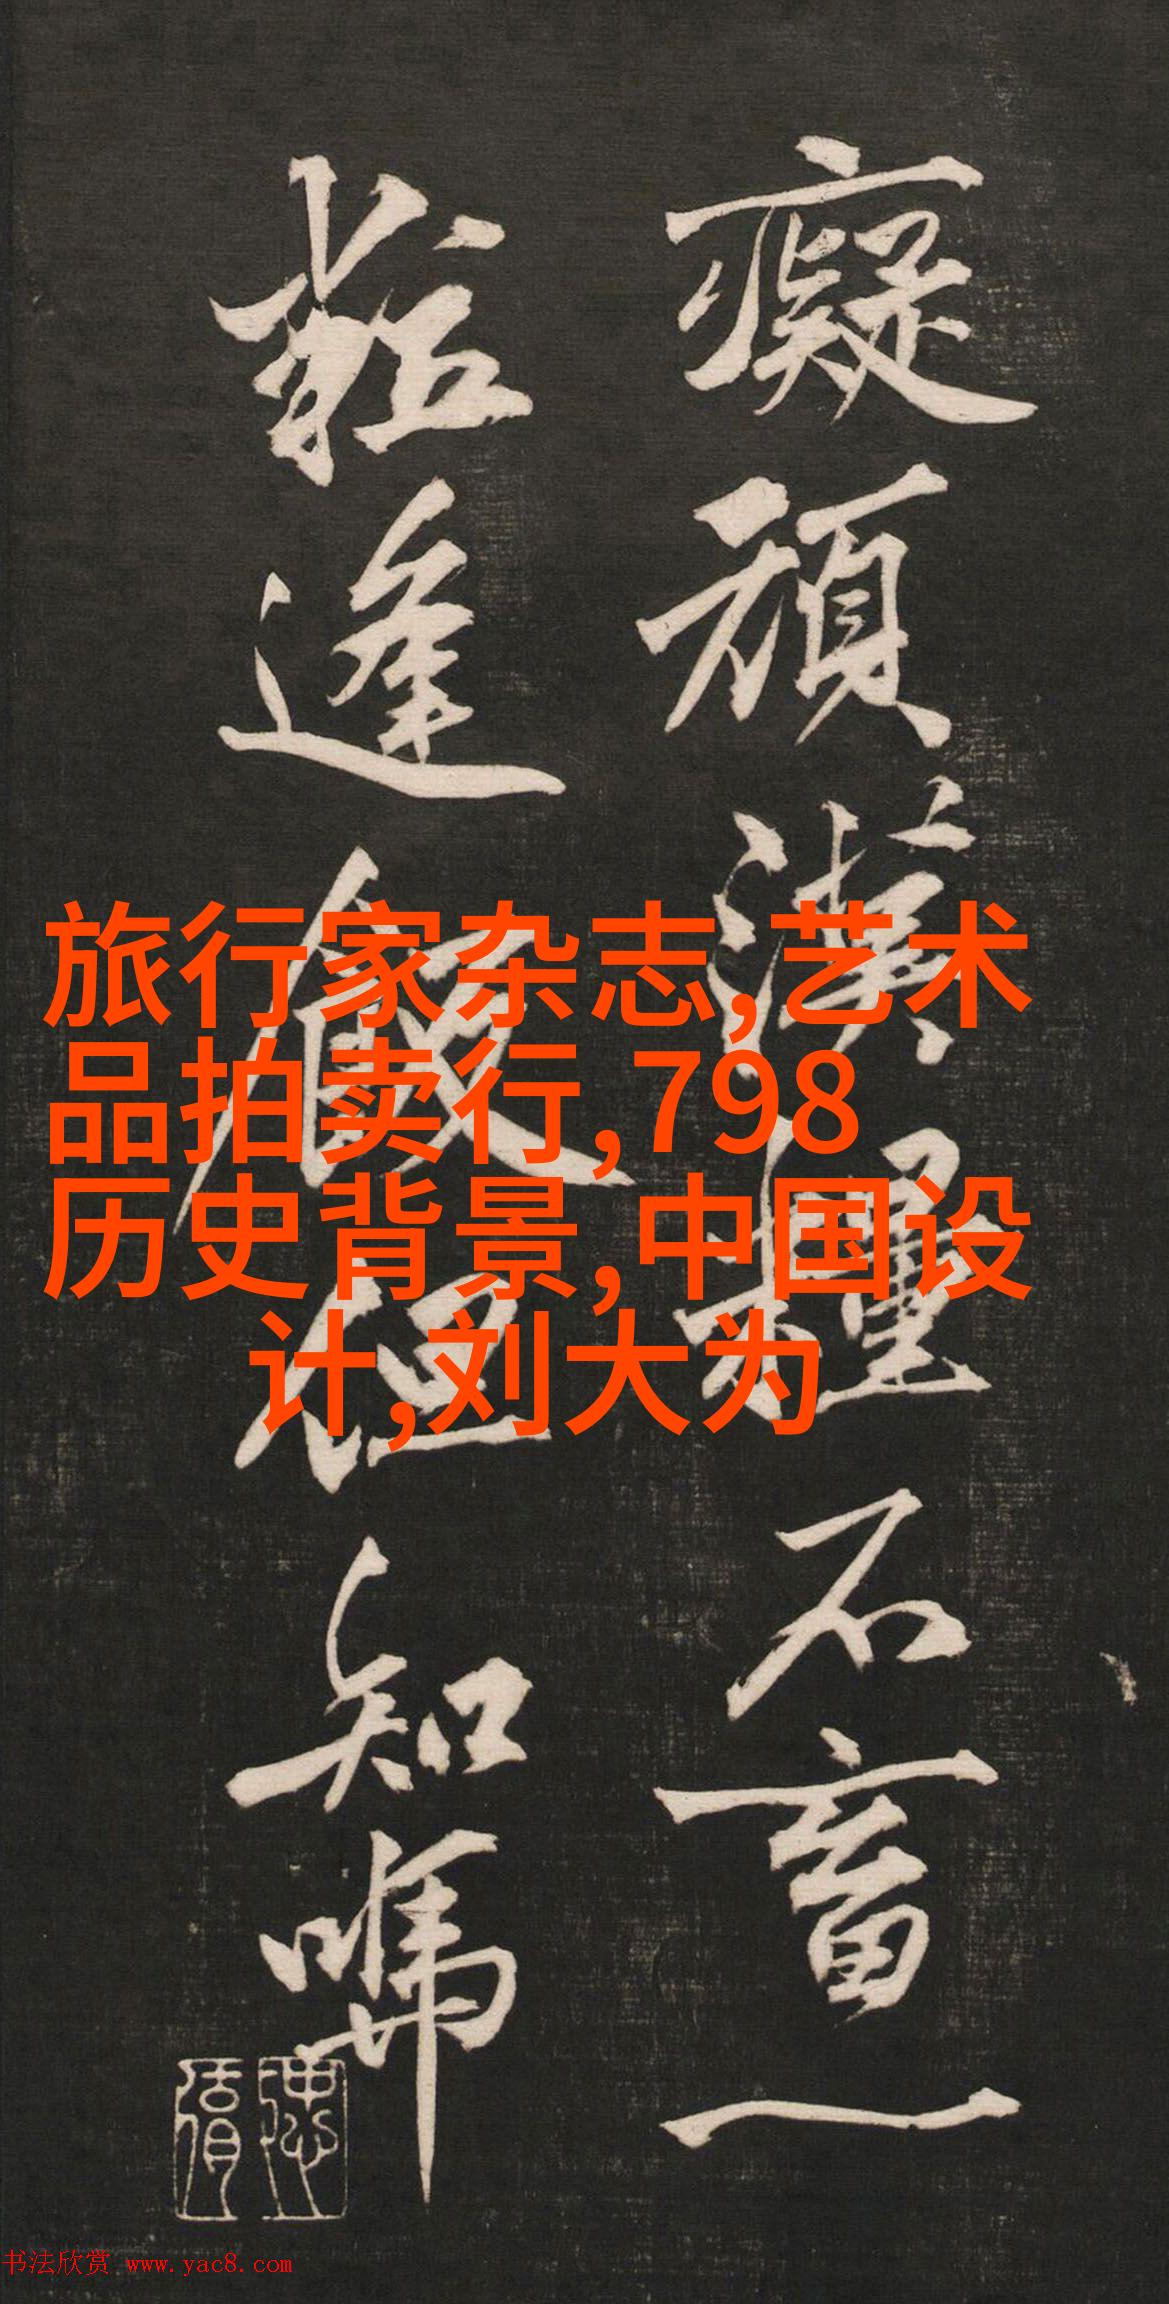 癡頑漢糧不畜一
粒逢飯但知
旅行家杂志,艺术
品拍卖行,798
历史背景,中国设
计,刘大为
书法欣赏 www.yac8.com